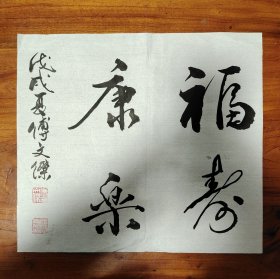 福寿
康樂
戊戌夏傅文傑